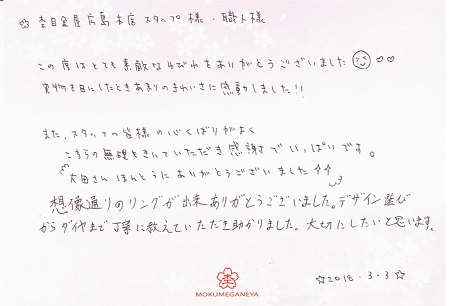 ☆ 杢目金屋広島本店スタッフ様・職人様
この度はとても素敵なゆびわをありがとうございました♡♡
実物を目にしたときあまりのきれいさに感動しました!!
また、スタッフの皆様の心くばりがよく
こちらの無理をきいていただき感謝でいっぱいです。
太田さんほんとうにありがとうございました
想像通りのリングが出来ありがとうございました。デザイン選び
からダイヤまで丁寧に教えていただき助かりました。大切にしたいと思います。
☆2018.3.3☆
MOKUMEGANEYA